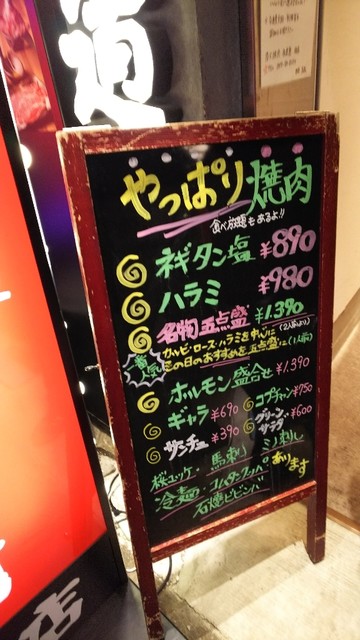 道
やっぱり焼肉
食べ放題もあるよ!!
ネギタン塩 ¥890
ハラミ ¥980
名物五点盛 ¥1.390
(2人前より)
カルビ・ロース・ハラミを中心に
この日のおすすめを五点盛に(1人前)
一番人気
ホルモン盛合せ ¥1.390
ギャラ ¥690
コプチャン ¥750
サンチュ ¥390
グリーンサラダ ¥600
桜ユッケ・馬刺・ミノ刺し
冷麺・ユッケジャンクッパ
石焼ビビンバ
あります
店